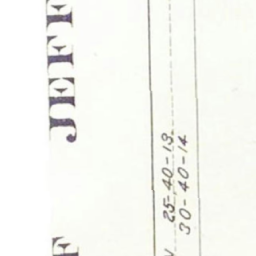 JEFF
25-40-13
30-40-14